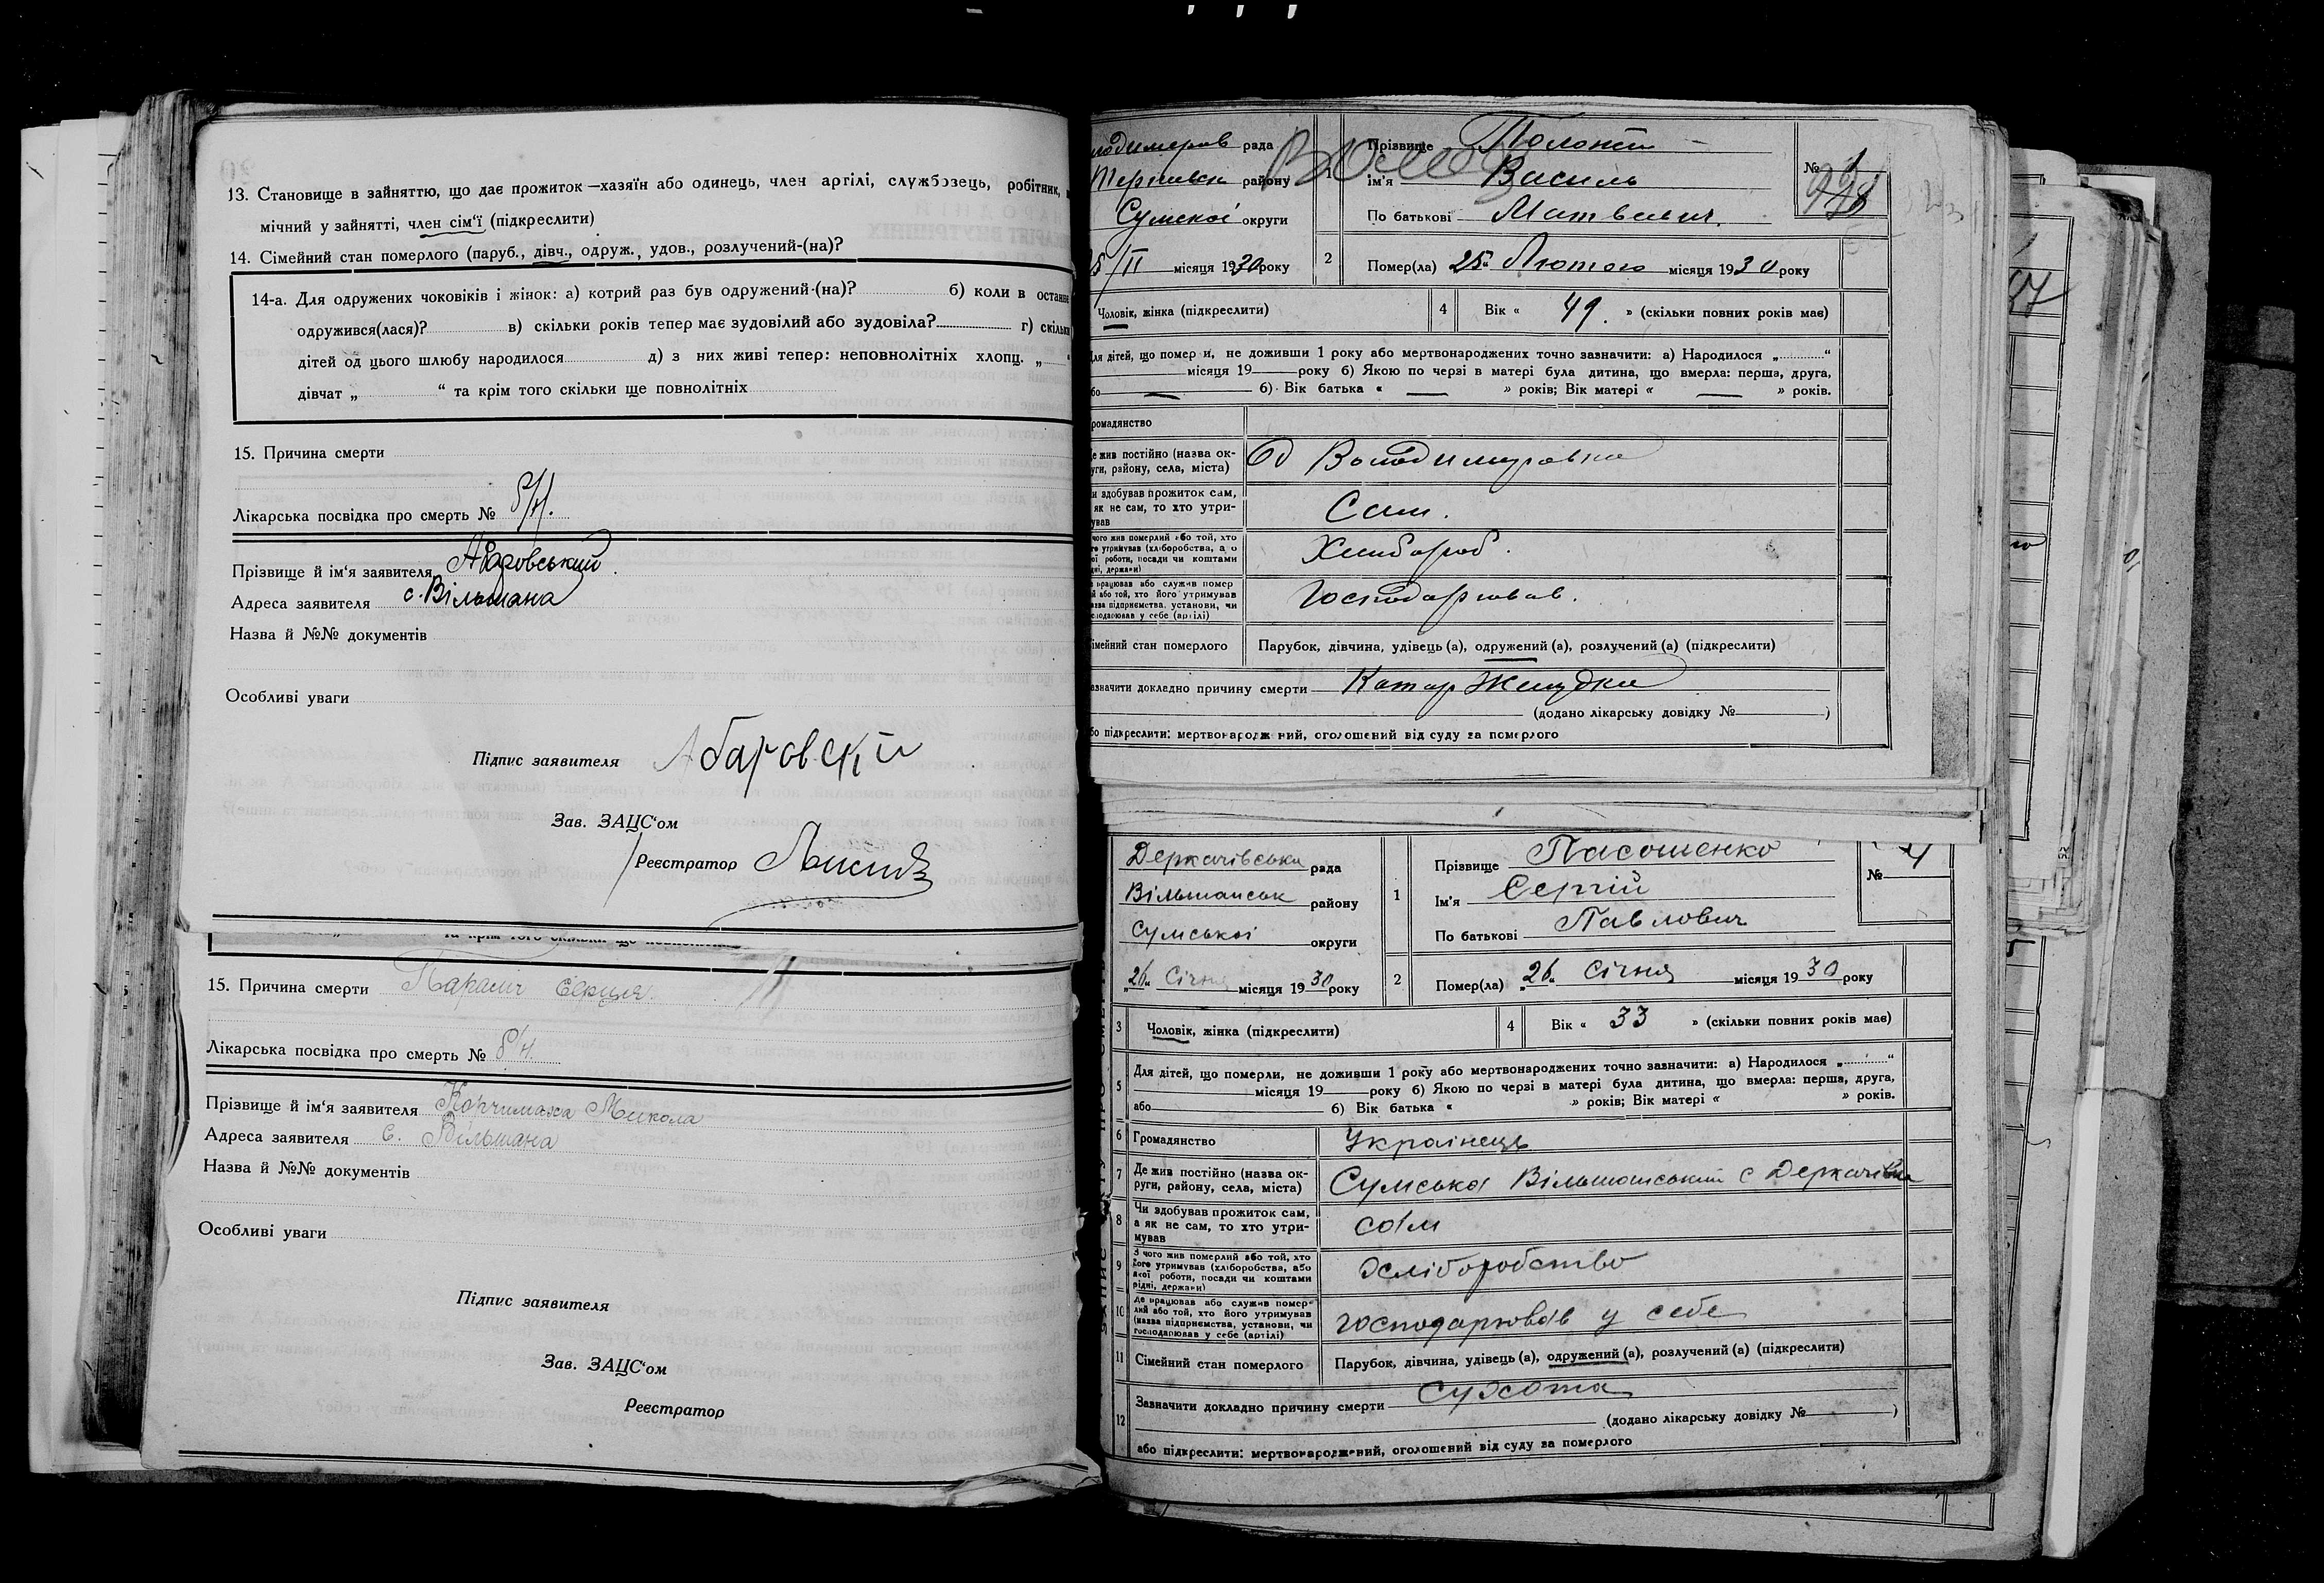 13. Становище в зайняттю, що дає прожиток—хазяїн або одинець, член артілі, службовець, робітник,
мічний у зайнятті, член сім'ї (підкреслити)
14. Сімейний стан померлого (паруб., дівч., одруж., удов., розлучений-(на)?
14-а. Для одружених чоковіків і жінок: а) котрий раз був одружений-(на)? б) коли в останнє
одружився(лася)? в) скільки років тепер має зудовілий або зудовіла? г) скільки
дітей од цього шлюбу народилося д) з них живі тепер: неповнолітніх хлопц. „ “
дівчат „ “ та крім того скільки ще повнолітніх
15. Причина смерти
Лікарська посвідка про смерть № б/н.
Прізвище й ім'я заявителя
Адреса заявителя с. Вільшана
Назва й №№ документів
Особливі уваги
Підпис заявителя Абаровскі
Зав. ЗАЦС'ом
Реєстратор
та крім того скільки ще повнолітніх
15. Причина смерти Параліч серця
Лікарська посвідка про смерть № б/н.
Прізвище й ім'я заявителя Микола
Адреса заявителя с. Вільшана
Назва й №№ документів
Особливі уваги
Підпис заявителя
Зав. ЗАЦС'ом
Реєстратор
лодимиров рада
району
Сумської округи
5/II місяця 1930 року
1
Прізвище
Ім'я Василь
По батькові Матвеевич.
№ 1
2
Помер(ла) 25 „ Лютого місяця 1930 року
Чоловік, жінка (підкреслити)
4
Вік « 49. » (скільки повних років має)
Для дітей, що померли, не доживши 1 року або мертвонароджених точно зазначити: а) Народилося „ “
місяця 19 року б) Якою по черзі в матері була дитина, що вмерла: перша, друга,
або б) Вік батька « — » років; Вік матері « — » років.
громадянство
Де жив постійно (назва ок-
руги, району, села, міста)
Володимировка
Чи здобував прожиток сам,
як не сам, то хто утри-
мував
Сам.
чого жив померлий або той, хто
його утримував (хліборобства, або
якої роботи, посади чи коштами
рідні, держави)
Хлибороб.
Де працював або служив помер
лий або той, хто його утримував
назва підприємства, установи, чи
господарював у себе (артілі)
Господарював.
Сімейний стан померлого
Парубок, дівчина, удівець (а), одружений (а), розлучений (а) (підкреслити)
зазначити докладно причину смерти Катар Жилудка
(додано лікарську довідку № )
або підкреслити: мертвонароджений, оголошений від суду за померлого
Деркачівська рада
Вільшанськ району
Сумської округи
„26“ Січня місяця 1930 року
1
Прізвище Пасошенко
Ім'я Сергій
По батькові Павлович
№ 4
2
Помер(ла) „26“ Січня місяця 1930 року
3
Чоловік, жінка (підкреслити)
4
Вік « 33 » (скільки повних років має)
5
Для дітей, що померли, не доживши 1 року або мертвонароджених точно зазначити: а) Народилося „ “
місяця 19 року б) Якою по черзі в матері була дитина, що вмерла: перша, друга,
або б) Вік батька « » років; Вік матері « » років.
6
Громадянство
Українець
7
Де жив постійно (назва ок-
руги, району, села, міста)
Сумська Вільшанський с Деркачівка
8
Чи здобував прожиток сам,
а як не сам, то хто утри-
мував
сам
9
З чого жив померлий або той, хто
його утримував (хліборобства, або
якої роботи, посади чи коштами
рідні, держави)
хліборобство
10
Де працював або служив помер-
лий або той, хто його утримував
(назва підприємства, установи, чи
господарював у себе (артілі)
господарював у себе
11
Сімейний стан померлого
Парубок, дівчина, удівець (а), одружений (а), розлучений (а) (підкреслити)
12
Зазначити докладно причину смерти Сухота
(додано лікарську довідку № )
або підкреслити: мертвонароджений, оголошений від суду за померлого